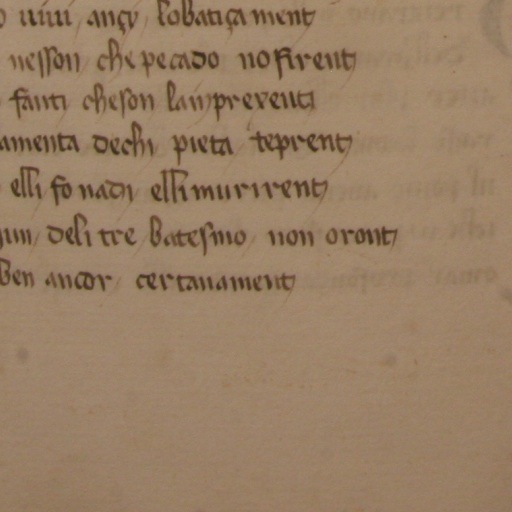 uiui ançy lobatiçament
nesson che pecado no firent
fanti che son lainpreventi
amenta de chi pieta te prent
elli fo nadi elli murirent
un deli tre batesmo non oront
ben ancor certanament